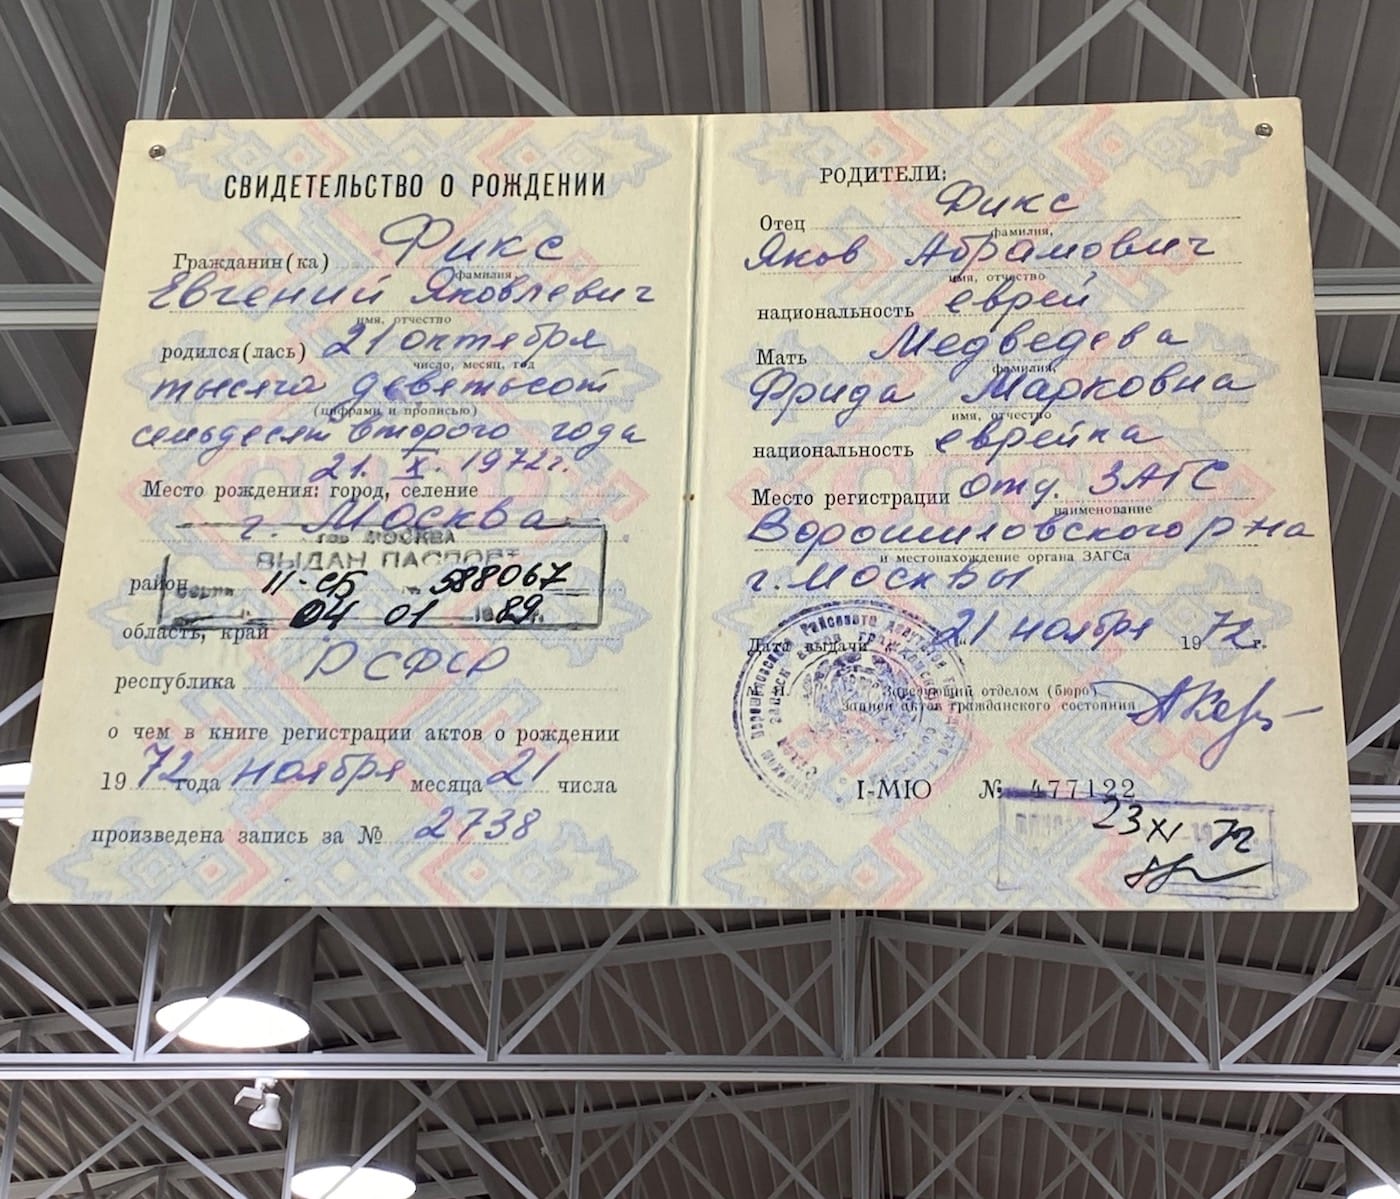 СВИДЕТЕЛЬСТВО О РОЖДЕНИИ
Гражданин(ка) Фикс
фамилия,
Евгений Яковлевич
имя, отчество
родился(лась) 21 октября
число, месяц, год
тысяча девятьсот
(цифрами и прописью)
семьдесят второго года
21. X. 1972г.
Место рождения: город, селение
г. Москва
гор МОСКВА
ВЫДАН ПАСПОРТ
район
Серия II-СБ № 588067
04 01 1989г.
область, край
республика РСФСР
о чем в книге регистрации актов о рождении
1972 года ноября месяца 21 числа
произведена запись за № 2738
РОДИТЕЛИ:
Отец Фикс
фамилия,
Яков Абрамович
имя, отчество
национальность еврей
Мать Медведева
фамилия,
Фрида Марковна
имя, отчество
национальность еврейка
Место регистрации отд. ЗАГС
наименование
Ворошиловского р на
и местонахождение органа ЗАГСа
г. Москвы
Дата выдачи 21 ноября 1972г.
М. П. Заведующий отделом (бюро)
записи актов гражданского состояния
I-МЮ № 477122
23 XI 72
СССР
СССР